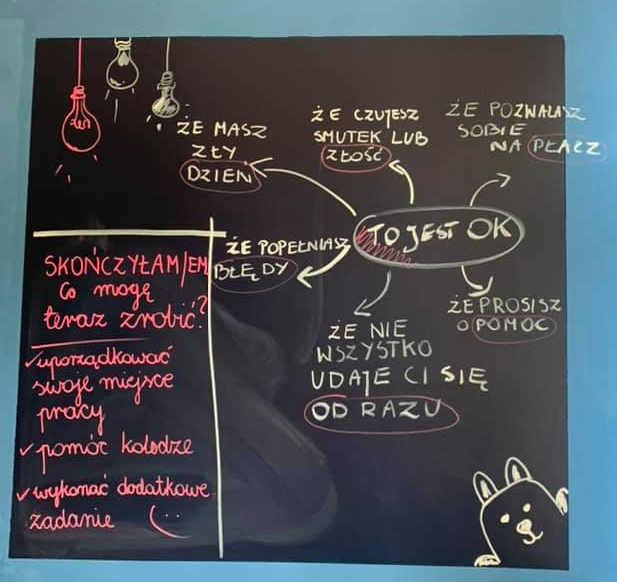 ŻE MASZ
ZŁY
DZIEŃ
ŻE CZUJESZ
SMUTEK LUB
ZŁOŚĆ
ŻE POZWALASZ
SOBIE
NA PŁACZ
TO JEST OK
ŻE POPEŁNIASZ
BŁĘDY
ŻE PROSISZ
O POMOC
ŻE NIE
WSZYSTKO
UDAJE CI SIĘ
OD RAZU
SKOŃCZYŁAM/EM
Co mogę
teraz zrobić?
uporządkować
swoje miejsce
pracy
pomóc koledze
wykonać dodatkowe
zadanie